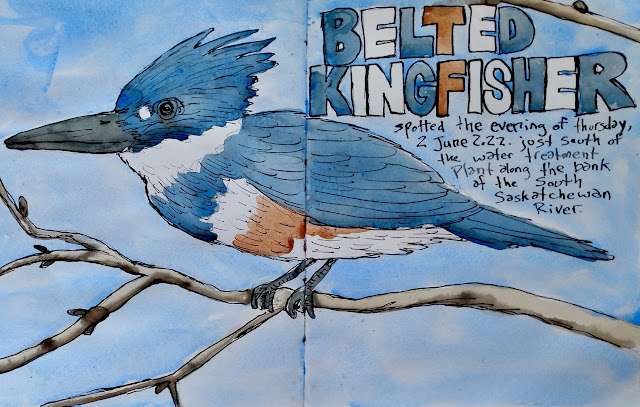 BELTED
KINGFISHER
spotted the evening of thursday,
2 June 2.22. just south of
the water treatment
Plant along the bank
of the South
Saskatchewan
River.